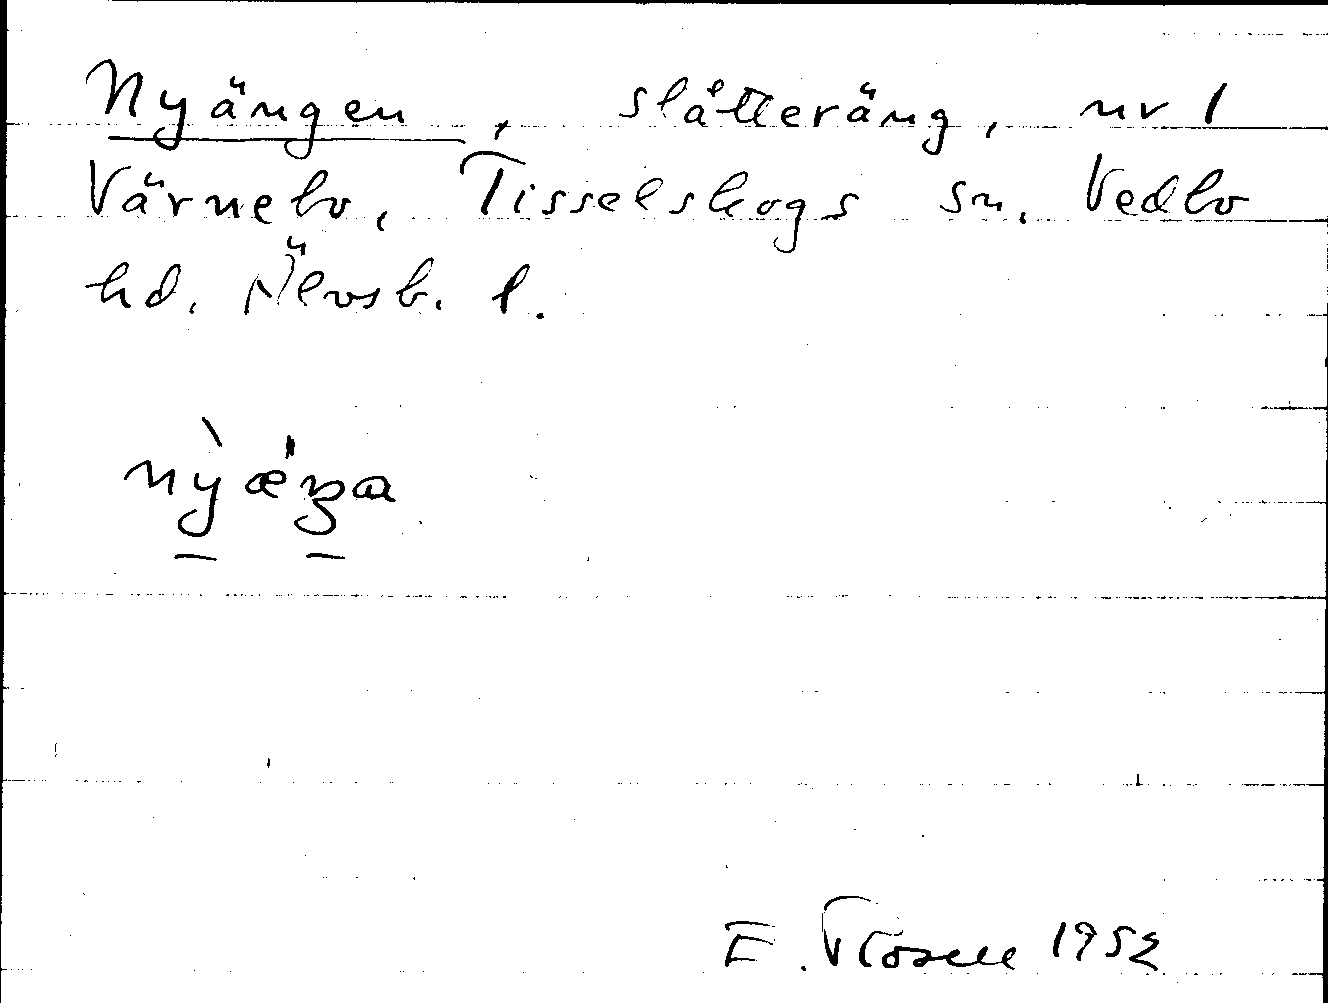 Nyängen, slåtteräng, nr 1
Värnebo, Tisselskogs sn. Vedbo
hd. Älvsb. l.
nỳǽŋa
E. Rosell 1952